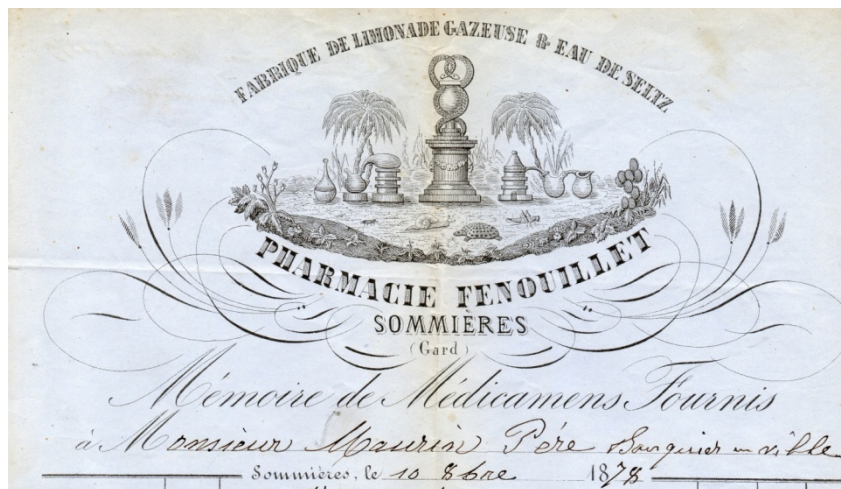 FABRIQUE DE LIMONADE GAZEUSE & EAU DE SELTZ
PHARMACIE FENOUILLET
SOMMIÈRES
(Gard)
Mémoire de Médicamens Fournis
à Monsieur Maurin Père Banquier en ville
Sommières, le 10 8bre 1878